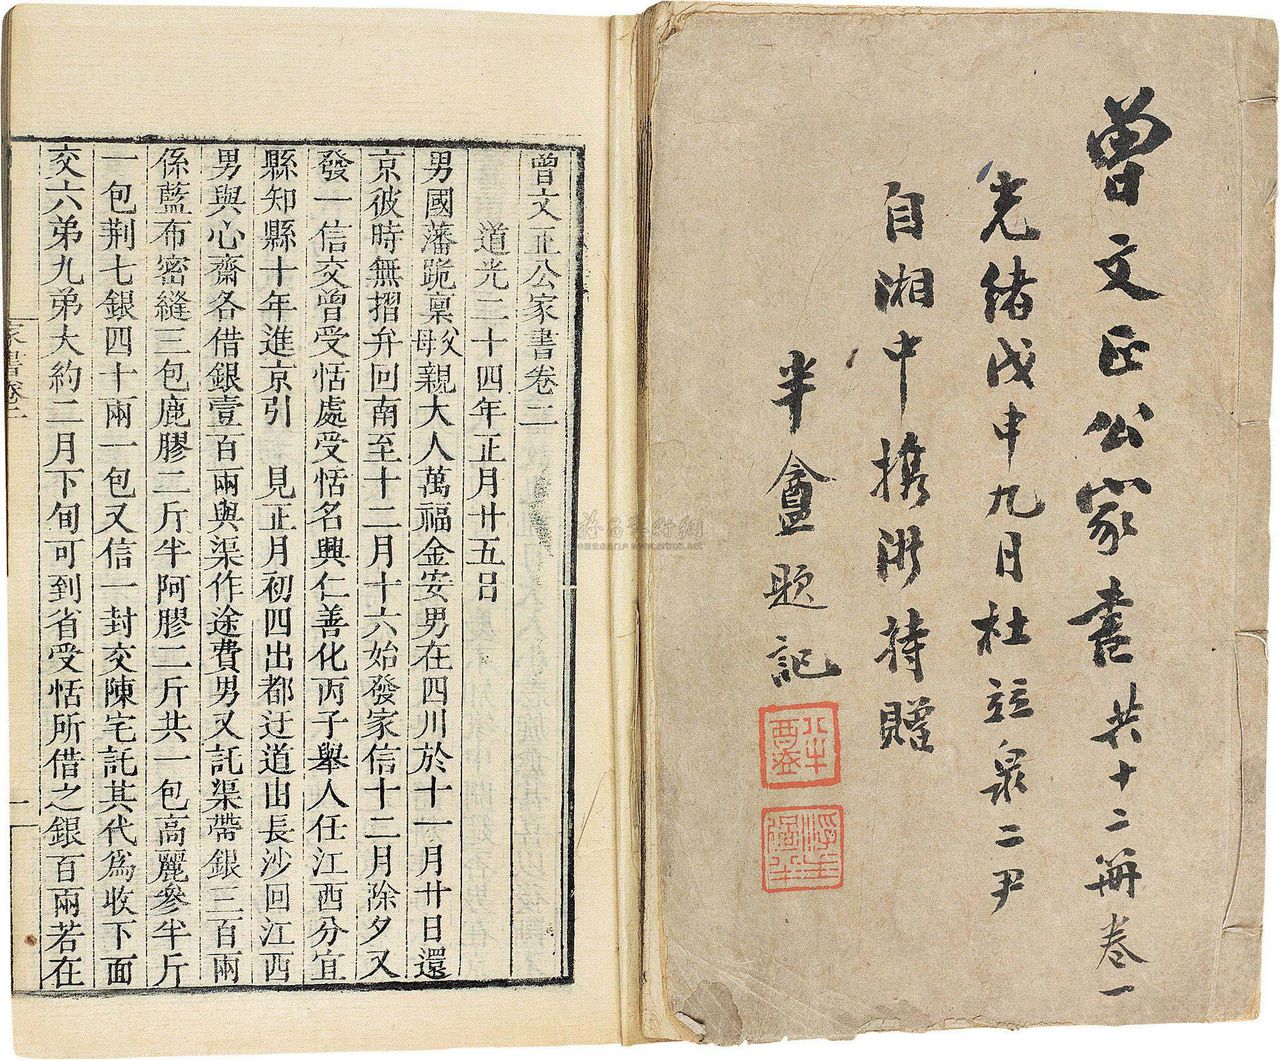 曾文正公家書共十二冊卷一
光緒戊申九月杜竝泉二尹
自湘中攜涉持贈
半盦題記
曾文正公家書卷二
道光二十四年正月廿五日
男國藩跪稟父母親大人萬福金安男在四川於十一月廿日還
京彼時無摺弁回南至十二月十六始發家信十二月除夕又
發一信交曾受恬處受恬名興仁善化丙子舉人任江西分宜
縣知縣十年進京引 見正月初四出都迂道由長沙回江西
男與心齋各借銀壹百兩與渠作途費男又託渠帶銀三百兩
係藍布密縫三包鹿膠二斤半阿膠二斤共一包高麗參半斤
一包荊七銀四十兩一包又信一封交陳宅託其代為收下面
交六弟九弟大約二月下旬可到省受恬所借之銀百兩若在
家書卷二
一